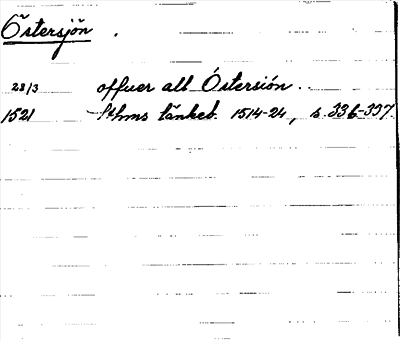 Östersjön .
28/3 offuer all Östersiön ..
1521 Sthms tänkeb. 1514-24, s. 336-337.